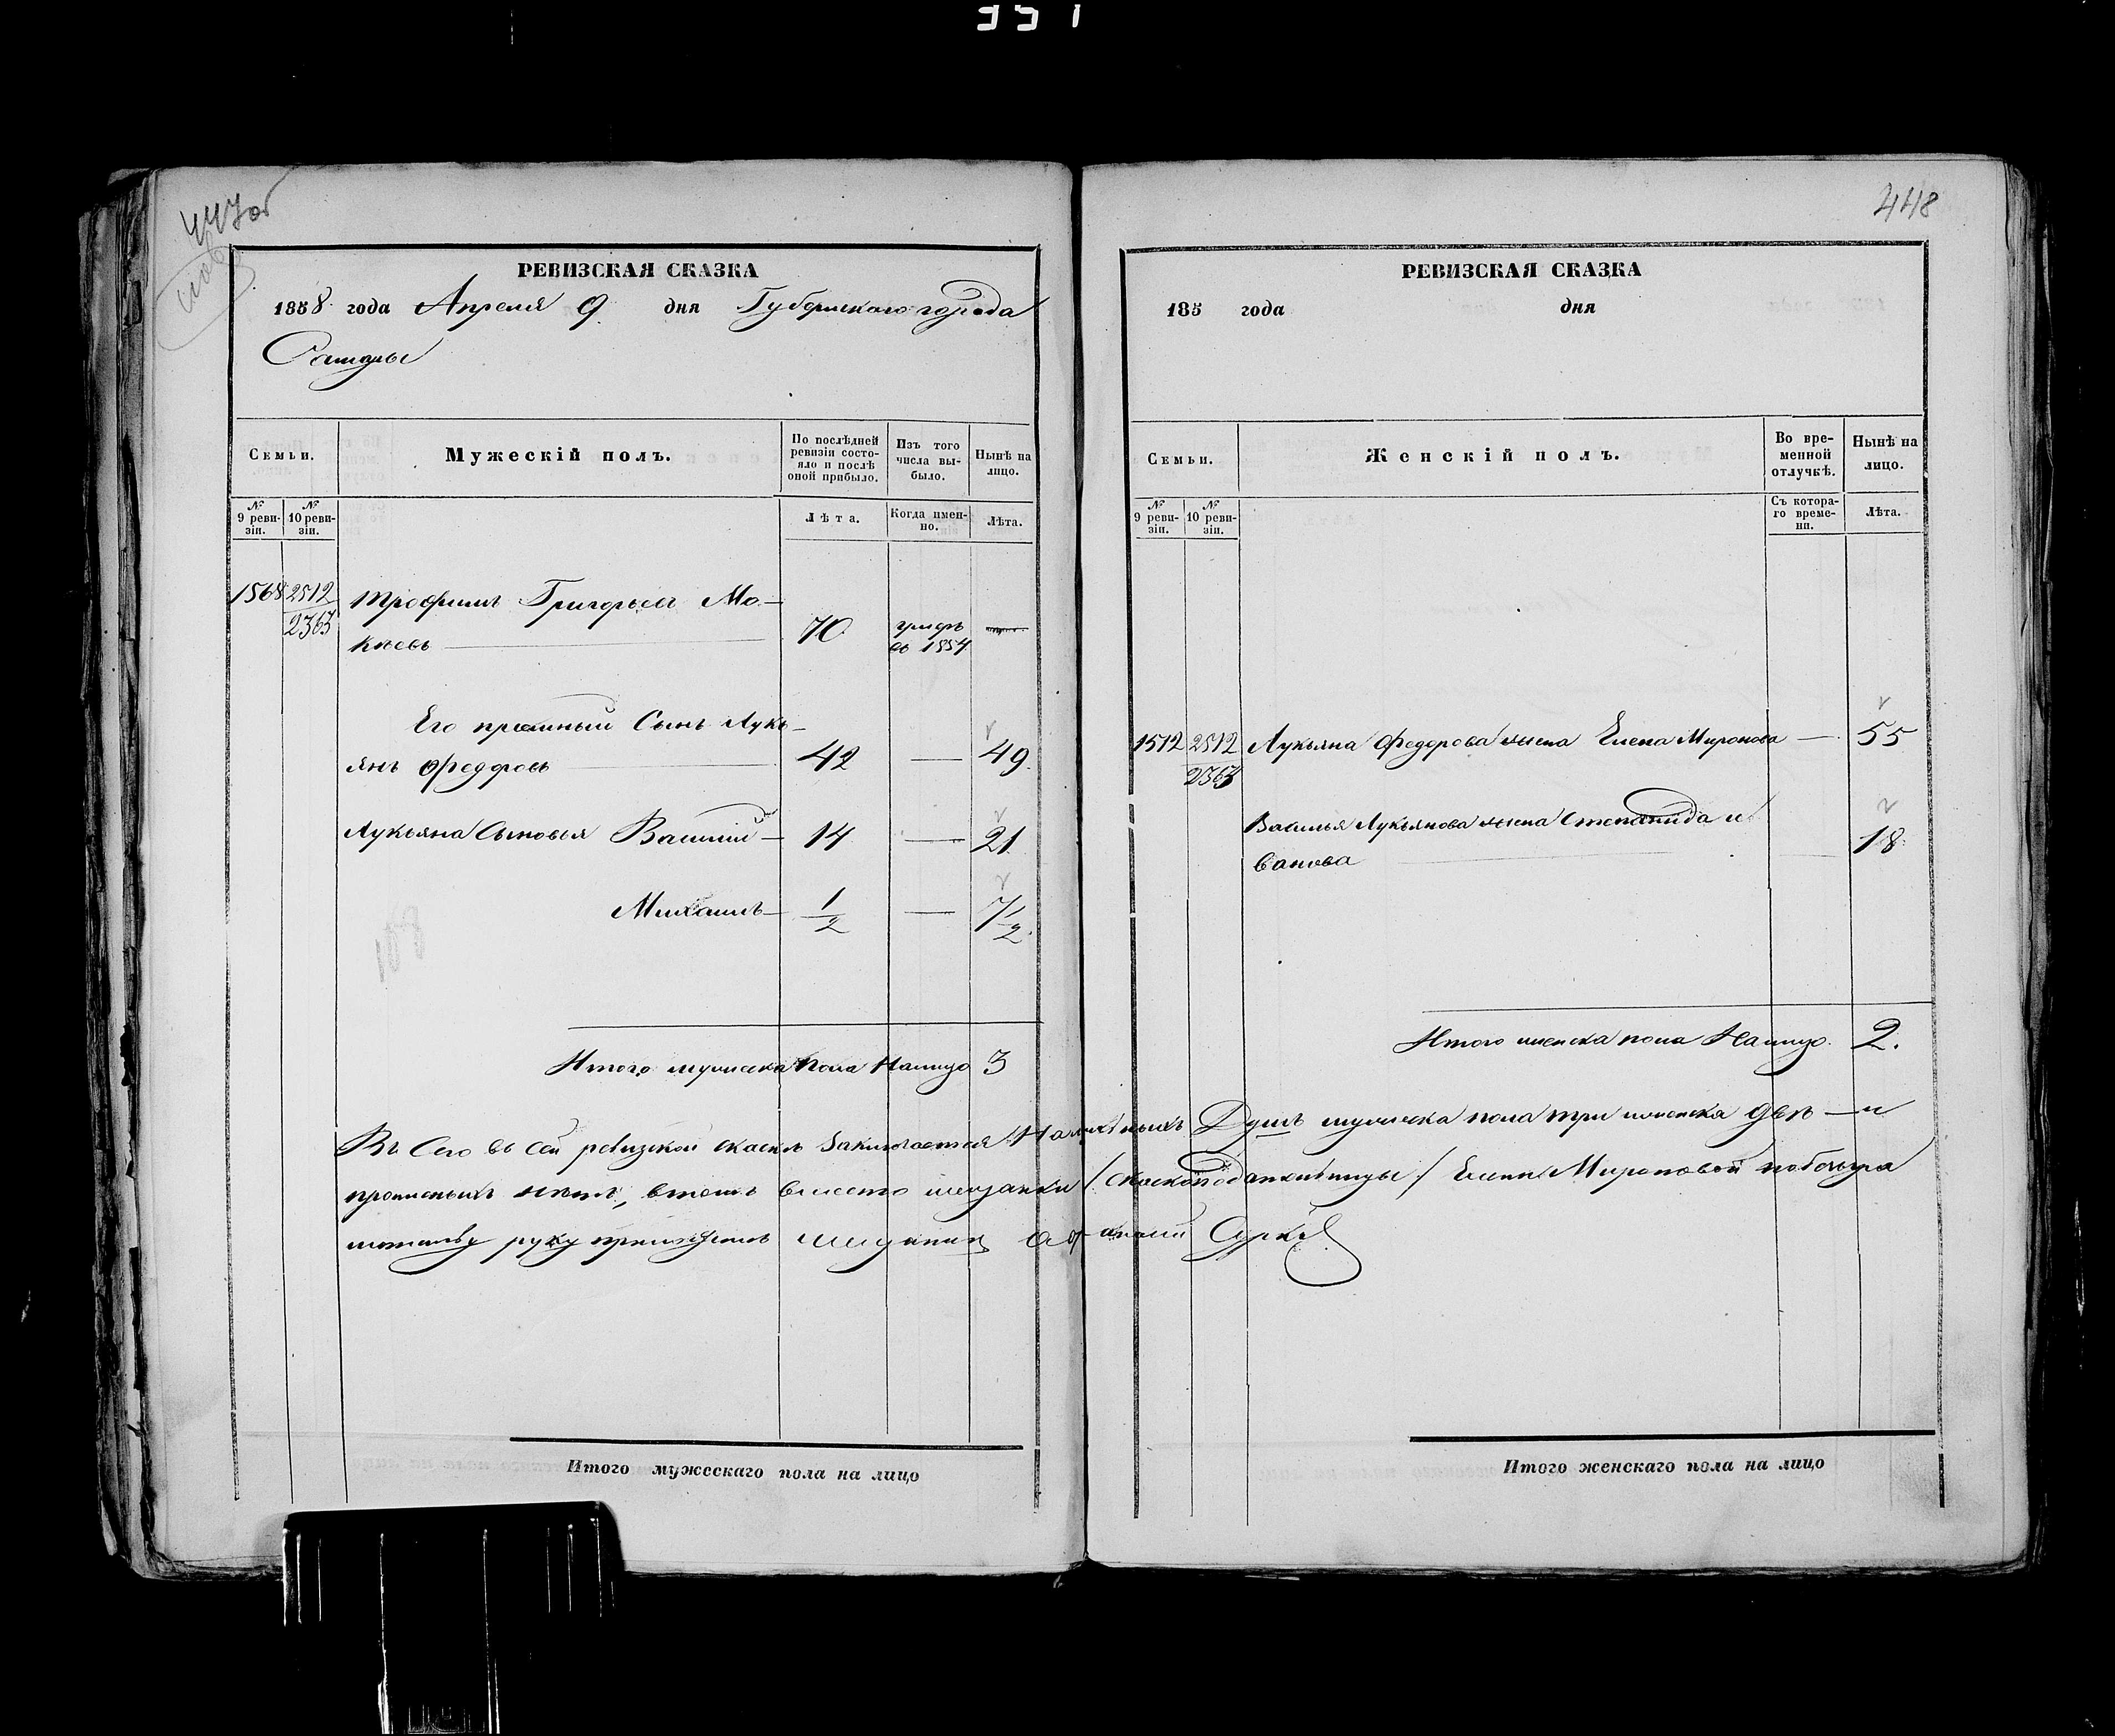 351
447 об
РЕВИЗСКАЯ СКАЗКА
1858 года Апреля 9 дня Губернскаго города
Самары
Семьи.
Мужескій полъ.
По послѣдней ревизіи состояло и послѣ оной прибыло.
Изъ того числа выбыло.
Нынѣ на лицо.
№ 9 ревизіи.
№ 10 ревизіи.
Лѣта.
Когда именно.
Лѣта.
1568 2512 Трофимъ Григорьевъ Мо-
2363 кѣевъ 70 умеръ въ 1854 —
Его приемный Сынъ Лукь-
янъ Федоровъ 42 — 49
Лукьяна Сыновья Василий — 14 — 21
Михаилъ — 1/2 — 7 1/2
Итого мужеска пола Налицо 3
448
РЕВИЗСКАЯ СКАЗКА
185 года дня
Семьи.
Женскій полъ.
Во временной отлучкѣ.
Нынѣ на лицо.
№ 9 ревизіи.
№ 10 ревизіи.
Съ котораго времени.
Лѣта.
1512 2512 Лукьяна Федорова жена Елена Миронова — 55
2363
Василья Лукьянова жена Степанида И
ванова 18
Итого женска пола Налицо 2.
въ сей ревизской скаскѣ заключается Наличныхъ Душъ мужеска пола три женска двѣ — и
прописныхъ нѣтъ, втомъ вместо мещанки / скаскоподательницы / Елены Мироновой
руку приложилъ мещанинъ
Итого мужескаго пола на лицо
Итого женскаго пола на лицо